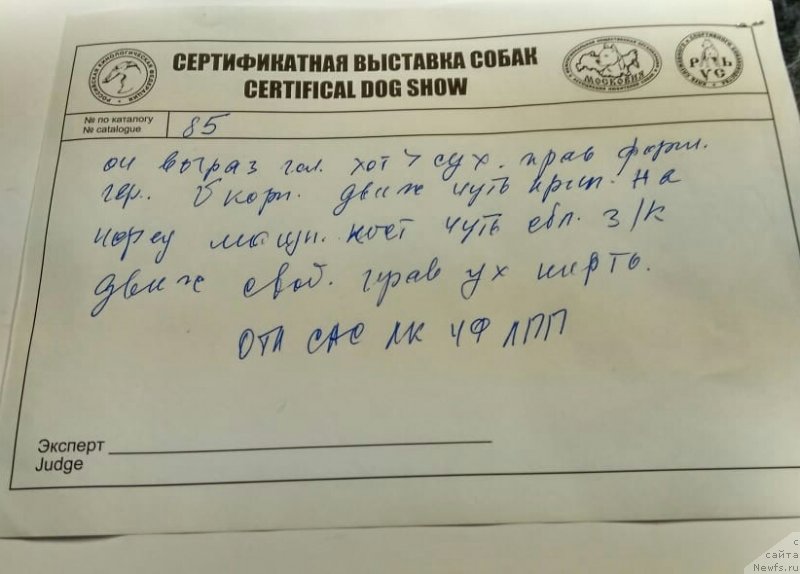 СЕРТИФИКАТНАЯ ВЫСТАВКА СОБАК
CERTIFICAL DOG SHOW
РОССИЙСКАЯ КИНОЛОГИЧЕСКАЯ ФЕДЕРАЦИЯ
МОСКОВИЯ
РУСЬ
№ по каталогу
№ catalogue
85
оч выраз гол. хот > сух. прав форм.
кор. движ чуть прип. на
перед мощн. кост чуть сбл. з/к
движ своб. прав ух шерсть.
ОТЛ САС ЛК ЧФ ЛПП
Эксперт
Judge
с
сайта
Newfs.ru